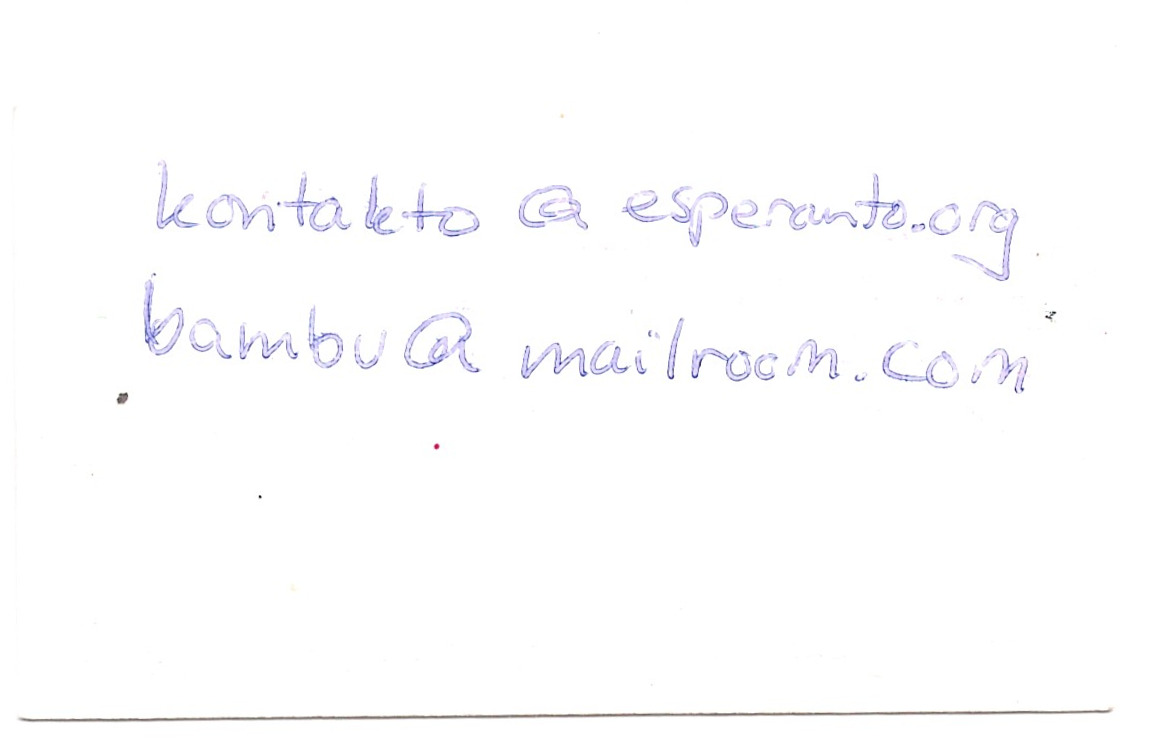 kontakto @ esperanto.org
bambu@ mailroom.com